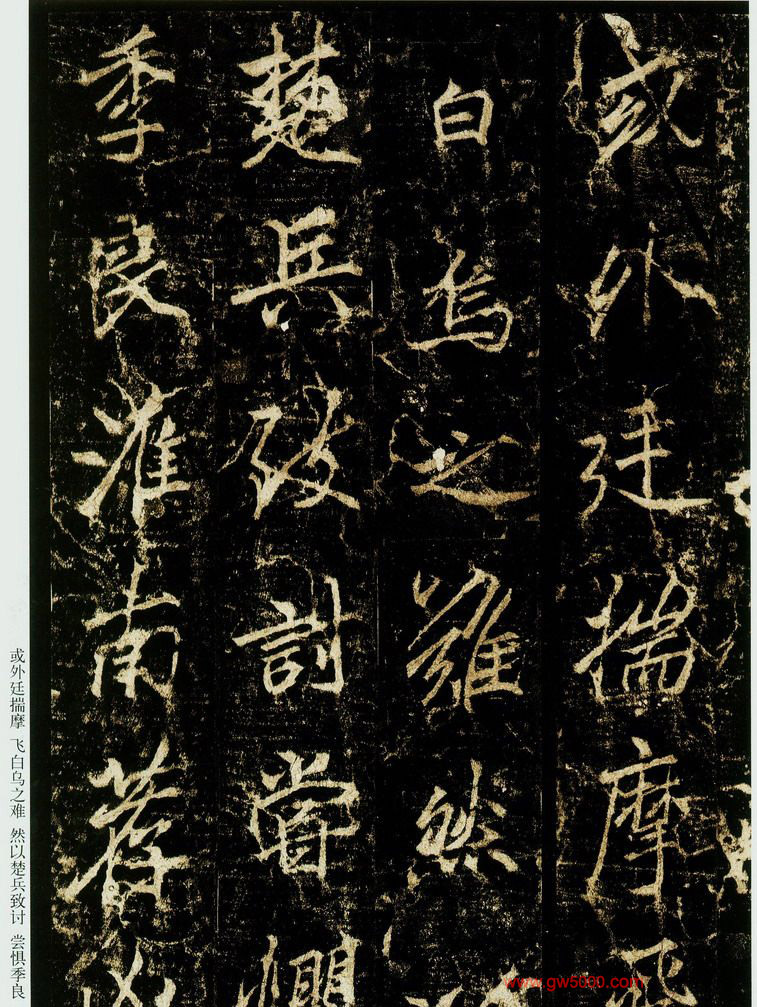 或外廷揣摩飛
白烏之難然
楚兵致討嘗懼
季良淮南薦
或外廷揣摩 飞白乌之难 然以楚兵致讨 尝惧季良